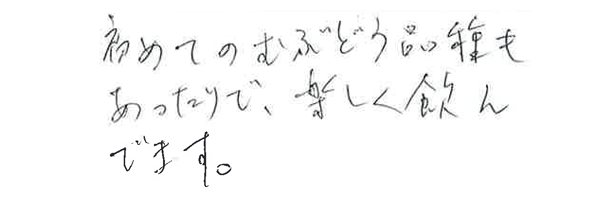 初めてのむぶどう品種も
あったりで、楽しく飲ん
でます。